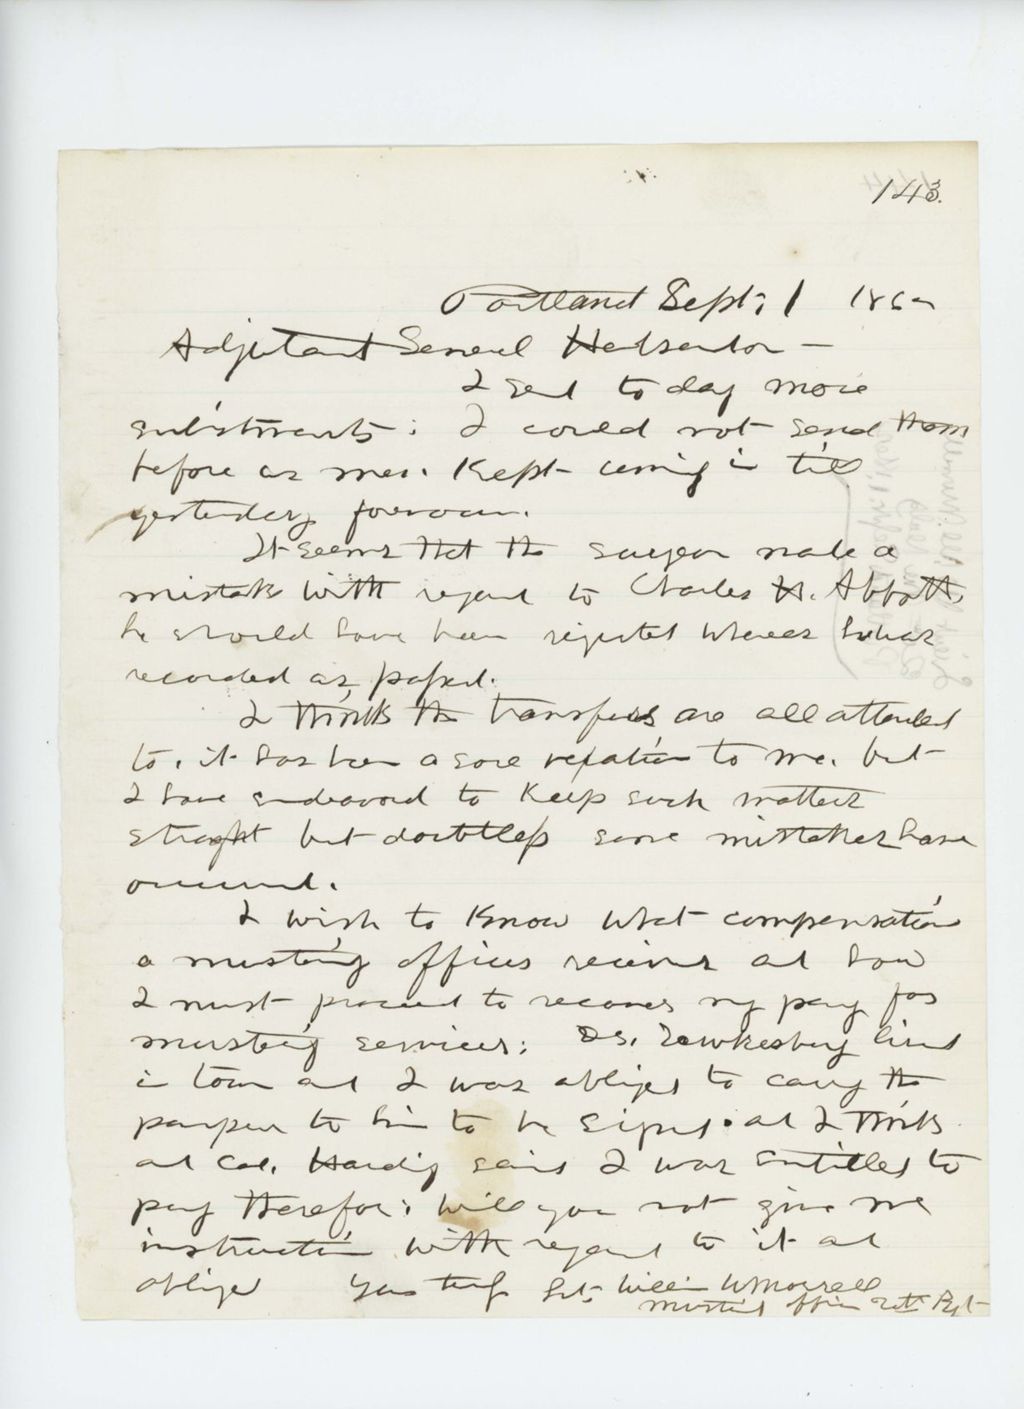 143.
Portland Sept. 1 1862
Adjutant General Hodsdon –
I send to day more
enlistments: I could not send them
before as men kept coming in till
yesterday forenoon.
It seems that the surgeon made a
mistake with regard to Charles H. Abbott,
he should have been rejected whereas he was
recorded as passed.
I think the transfers are all attended
to, it has been a sore vexation to me, but
I have endeavored to keep such matters
straight but doubtless some mistakes have
occurred.
I wish to know what compensation
a mustering officer receives and how
I must proceed to recover my pay for
mustering services: Dr. Tewkesbury lived
in town and I was obliged to carry the
papers to him to be signed. and I think
and Col. Harding said I was entitled to
pay therefor: will you not give me
instruction with regard to it and
oblige Yours truly Lt. William W Morrell
mustering officer 20th Regt